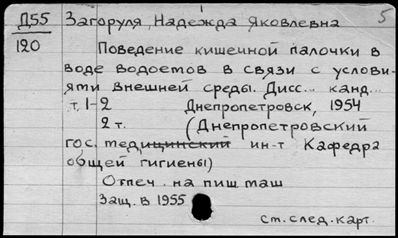 Д55 Загоруля, Надежда Яковлевна 5
120
Поведение кишечной палочки в
воде водоетов в связи с услови-
ями внешней среды. Дисс... канд...
т. 1-2 Днепропетровск, 1954
2 т. (Днепропетровский
гос. медицинский ин-т Кафедра
общей гигиены)
Отпеч. на пиш маш
Защ. в 1955
ст. след. карт.